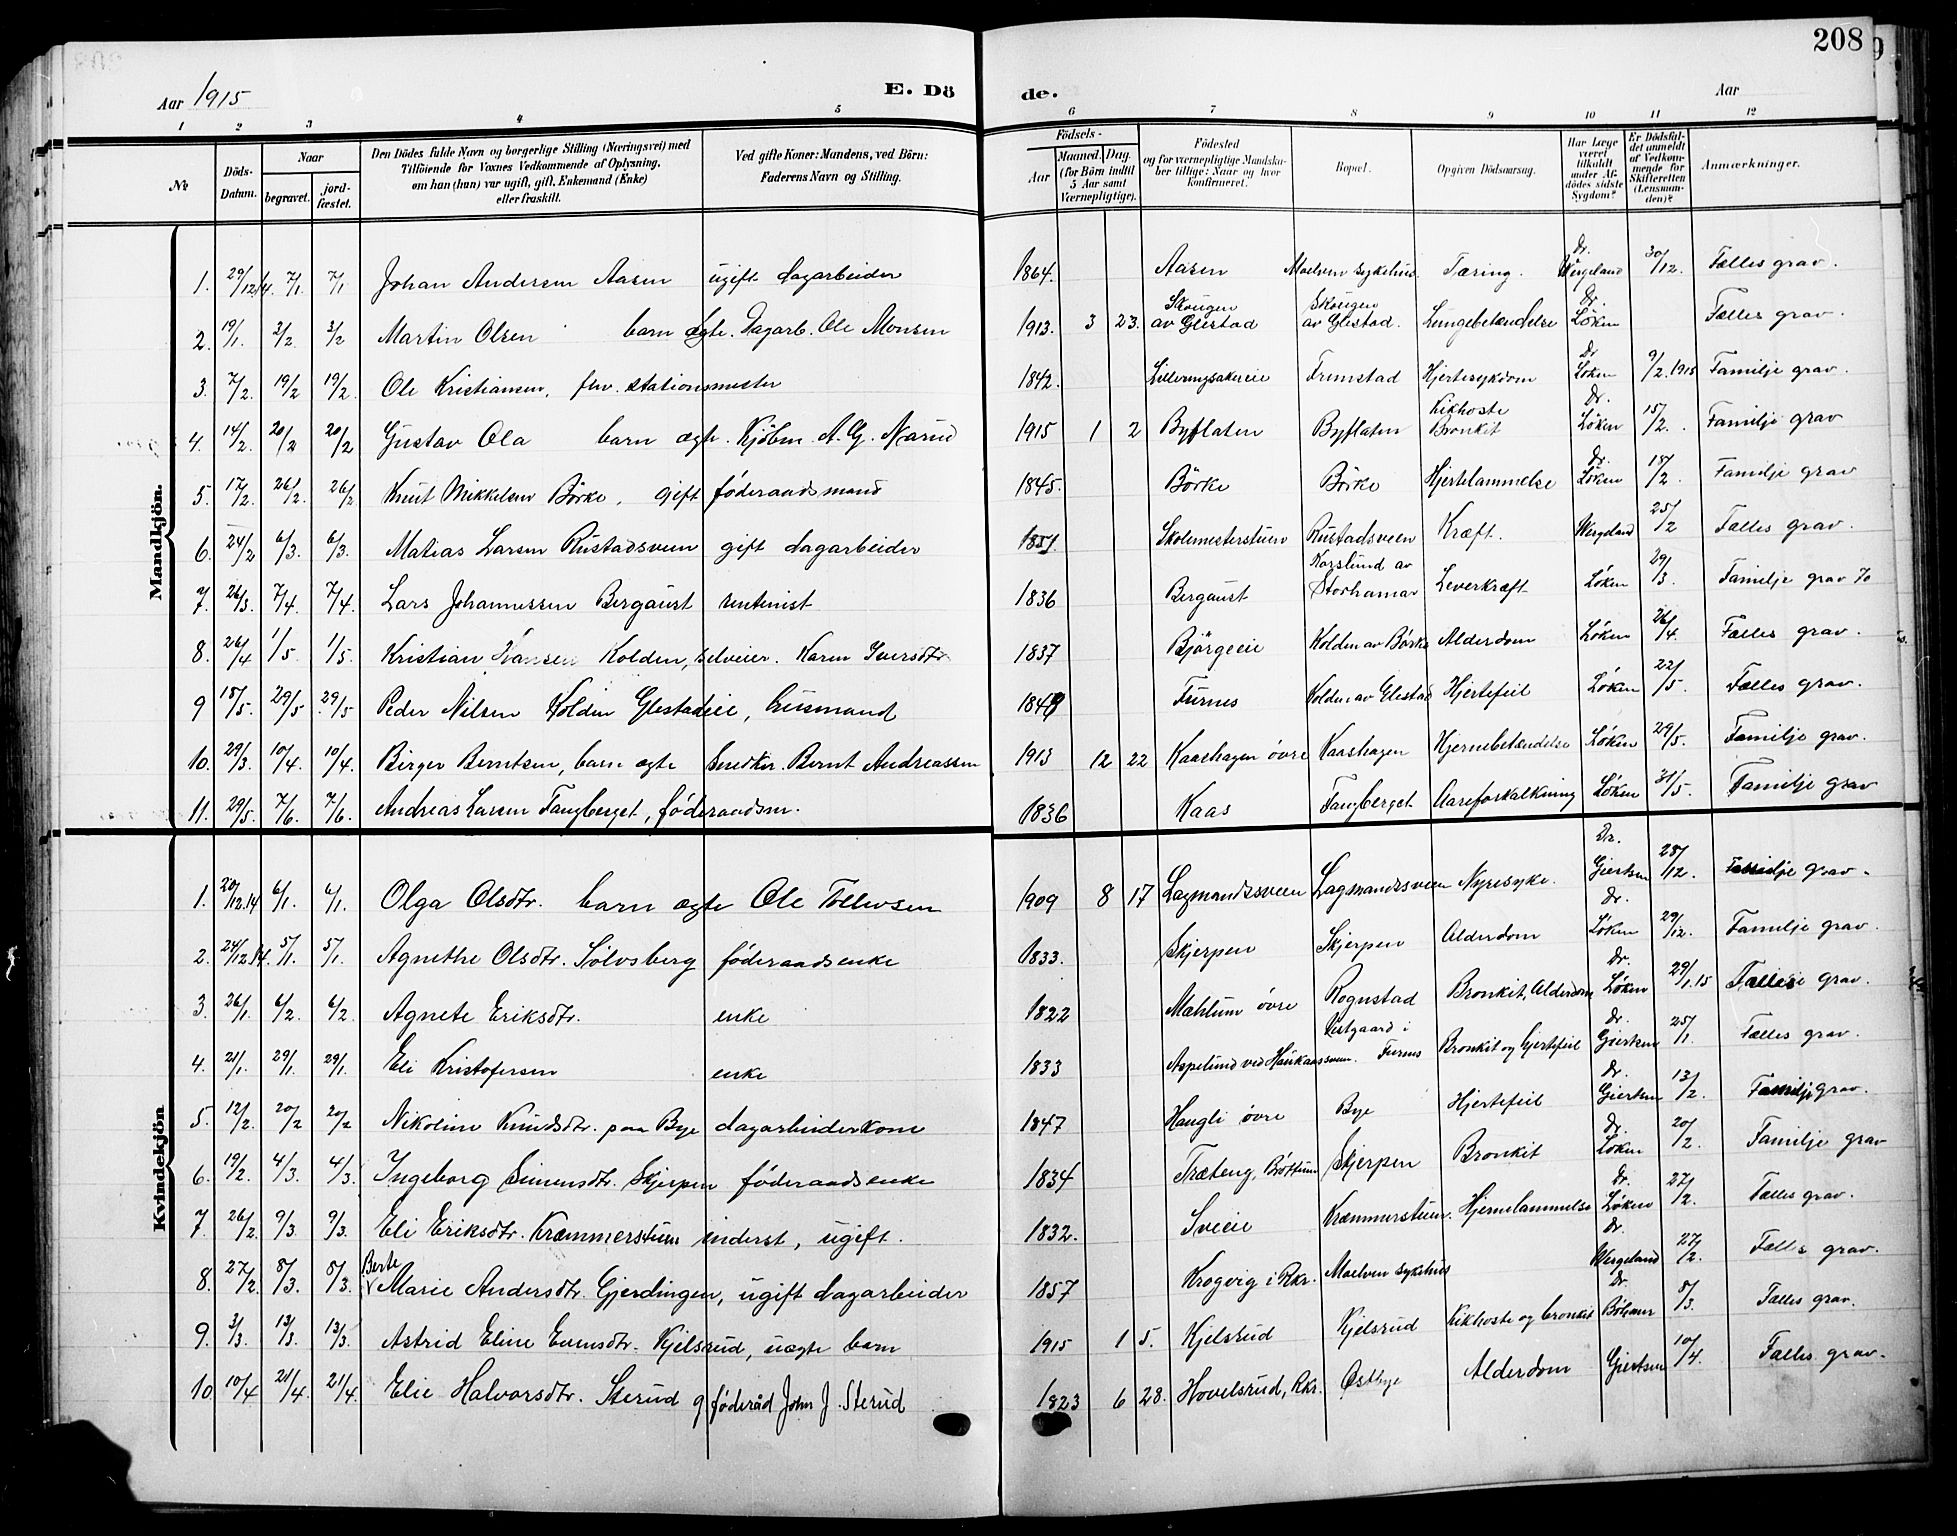 208
Aar 1915 E. Dö de. Aar
1 2 3 4 5 6 7 8 9 10 11 12
No Döds-Datum. Naar begravet. jord-fæstet. Den Dödes fulde Navn og borgerlige Stilling (Næringsvei) med Tilföiende for Voxnes Vedkommende af Oplysning, om han (hun) var ugift, gift, Enkemand (Enke) eller fraskilt. Ved gifte Koner: Mandens, ved Börn: Faderens Navn og Stilling. Födsels- Aar Maaned. Dag. (for Börn indtil 5 Aar samt Værnepligtige). Födested og for værnepligtige Mandskaber tillige: Naar og hvor konfirmeret. Bopæl. Opgiven Dödsaarsag. Har Læge været tilkaldt under Afdödes sidste Sygdom? Er Dödsfaldet anmeldt af Vedkommende for Skifteretten (Lensmanden)? Anmærkninger.
Mandkjön.
1. 29/12 14. 7/1. 7/1 Johan Andersen Aasen ugift dagarbeider 1864. Aasen Moelven sykehus Tæring. Dr. Wergeland 30/12. Fælles grav.
2. 19/1. 3/2 3/2 Martin Olsen barn ægte. Dagarb. Ole Monsen 1913. 3 23. Skougen av Glestad Skougen av Glestad. Lungebetændelse Dr. Løken Fælles grav.
3. 7/2. 19/2 19/2. Ole Kristiansen, fhv. stationsmester 1842. Lilleringsakereie Fremstad Hjertesykdom Dr Løken 9/2.1915 Familje grav.
4. 14/2. 20/2 20/2 Gustav Ola barn ægte. Kjøbm. A. G. Nærud 1915 1 2 Byflaten Byflaten Kikhoste Bronkit Dr. Løken 15/2. Familje grav
5. 17/2. 26/2. 26/2 Knut Mikkelsen Börke, gift føderaadsmand 1845. Börke Börke Hjertelammelse Dr. Løken 18/2. Familje grav
6. 24/2 6/3. 6/3. Matias Larsen Rustadsveen gift dagarbeider 1851. Skolemesterstuen Rustadsveen Kræft. Wergeland 25/2 Fælles grav.
7. 26/3. 7/4. 7/4. Lars Johannessen Bergaust rentenist 1836 Bergaust Korslund av Storhamar Leverkræft Løken 29/3. Familje grav
8. 26/4 1/5 1/5. Kristian Hansen Kolden, selveier. Karen Iversdtr 1837 Björgeeie Kolden av Börke Alderdom Løken 26/4. Fælles grav.
9 18/5. 29/5 29/5 Peder Nilsen Kolden Glestadeie, husmand 1849 Furnes Kolden av Glestad Hjertefeil Løken 22/5. Fælles grav.
10. 29/3. 10/4. 10/4. Birger Berntsen, barn ægte Snedker. Bernt Andreassen 1913 12 22 Kaashagen övre Kaashagen Hjernebetændelse Løken 29/5. Familje grav.
11. 29/5. 7/6. 7/6. Andreas Larsen Fangberget, føderaadsm. 1836 Kaas Fangberget Aareforkalkning Løken 31/5. Familje grav
Kvindekjön
1. 20/12.14 6/1. 6/1. Olga Olsdtr. barn ægte Ole Tollevsen 1909 8 17 Lagmandssveen Lagmandssveen Nyresyke. Dr. Giertsen 28/12. Familje grav.
2. 24/12.14. 5/1. 5/1. Agnethe Olsdtr. Sølvsberg føderaadsenke 1833. Skjerpen Skjerpen Alderdom Dr. Løken 29/12. Familje grav.
3. 26/1. 6/2. 6/2 Agnete Eriksdtr. enke 1822 Mæhlum övre Rognstad Bronkit, Alderdom Dr. Løken 29/1.15 Fælles grav.
4. 21/1. 29/1. 29/1. Eli Kristofersen enke 1833 Aspelund ved Haukaassveen. Vestgaard i Furnes Bronkit og hjertefeil Dr. Giertsen 25/1. Fælles grav.
5. 12/2. 20/2 20/2 Nikoline Knudsdtr. paa Bye dagarbeiderkone 1847 Haugli övre Bye Hjertefeil Dr. Giertsen 13/2. Familje grav.
6. 19/2. 4/3. 4/3. Ingeborg Simensdtr. Skjerpen føderaadsenke 1834 Træteng, Brøttum Skjerpen Bronkit Dr. Løken 20/2. Familje grav
7. 26/2 9/3. 9/3. Eli Eriksdtr. Kræmmerstuen inderst, ugift. 1832. Sveeie Kræmmerstuen. Hjernelammelse Dr. Løken 27/2. Fælles grav.
8. 27/2. 8/3. 8/3. Berte
Marie Andersdtr. Gjerdingen, ugift dagarbeider 1857 Krogvig i Rkr. Moelven sykehus Dr. Wergeland 27/2. Fælles grav.
9. 3/3. 13/3. 13/3. Astrid Eline Evensdtr. Kjelsrud, uægte barn 1915 1 5. Kjelsrud Kjelsrud Kikhoste og bronkit Dr. 8/3. Fælles grav.
10. 10/4 21/4. 21/4. Elie Halvorsdtr. Sterud g føderåd John J. Sterud 1823 6 28. Hovelsrud, Rkr. Østbye Alderdom Giertsen 10/4. Fælles grav.